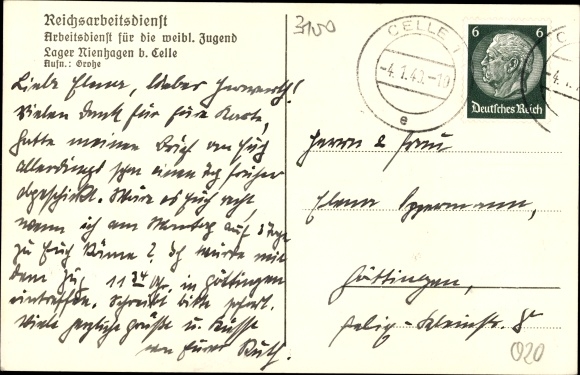 Reichsarbeitsdienst
Arbeitsdienst für die weibl. Jugend
Lager Nienhagen b. Celle
Aufn.: Grohe
3100
CELLE 1
-4.1.40.-10
e
6 6
Deutsches Reich
Liebe Elena, lieber
Vielen Dank für Eure Karte,
hatte meinen Brief an Euch
allerdings schon einen Tag früher
abgeschickt. Wäre es Euch recht,
wenn ich am Montag auf 3 Tage
zu Euch käme? Ich würde mit
dem Zug 11 34 Uhr in Göttingen
eintreffen. Schreibt bitte sofort.
Viele herzliche Grüße u. Küsse
von Eurer Ruth.
Herrn & Frau
Elena
Göttingen,
Felix-Kleinstr. 8
020